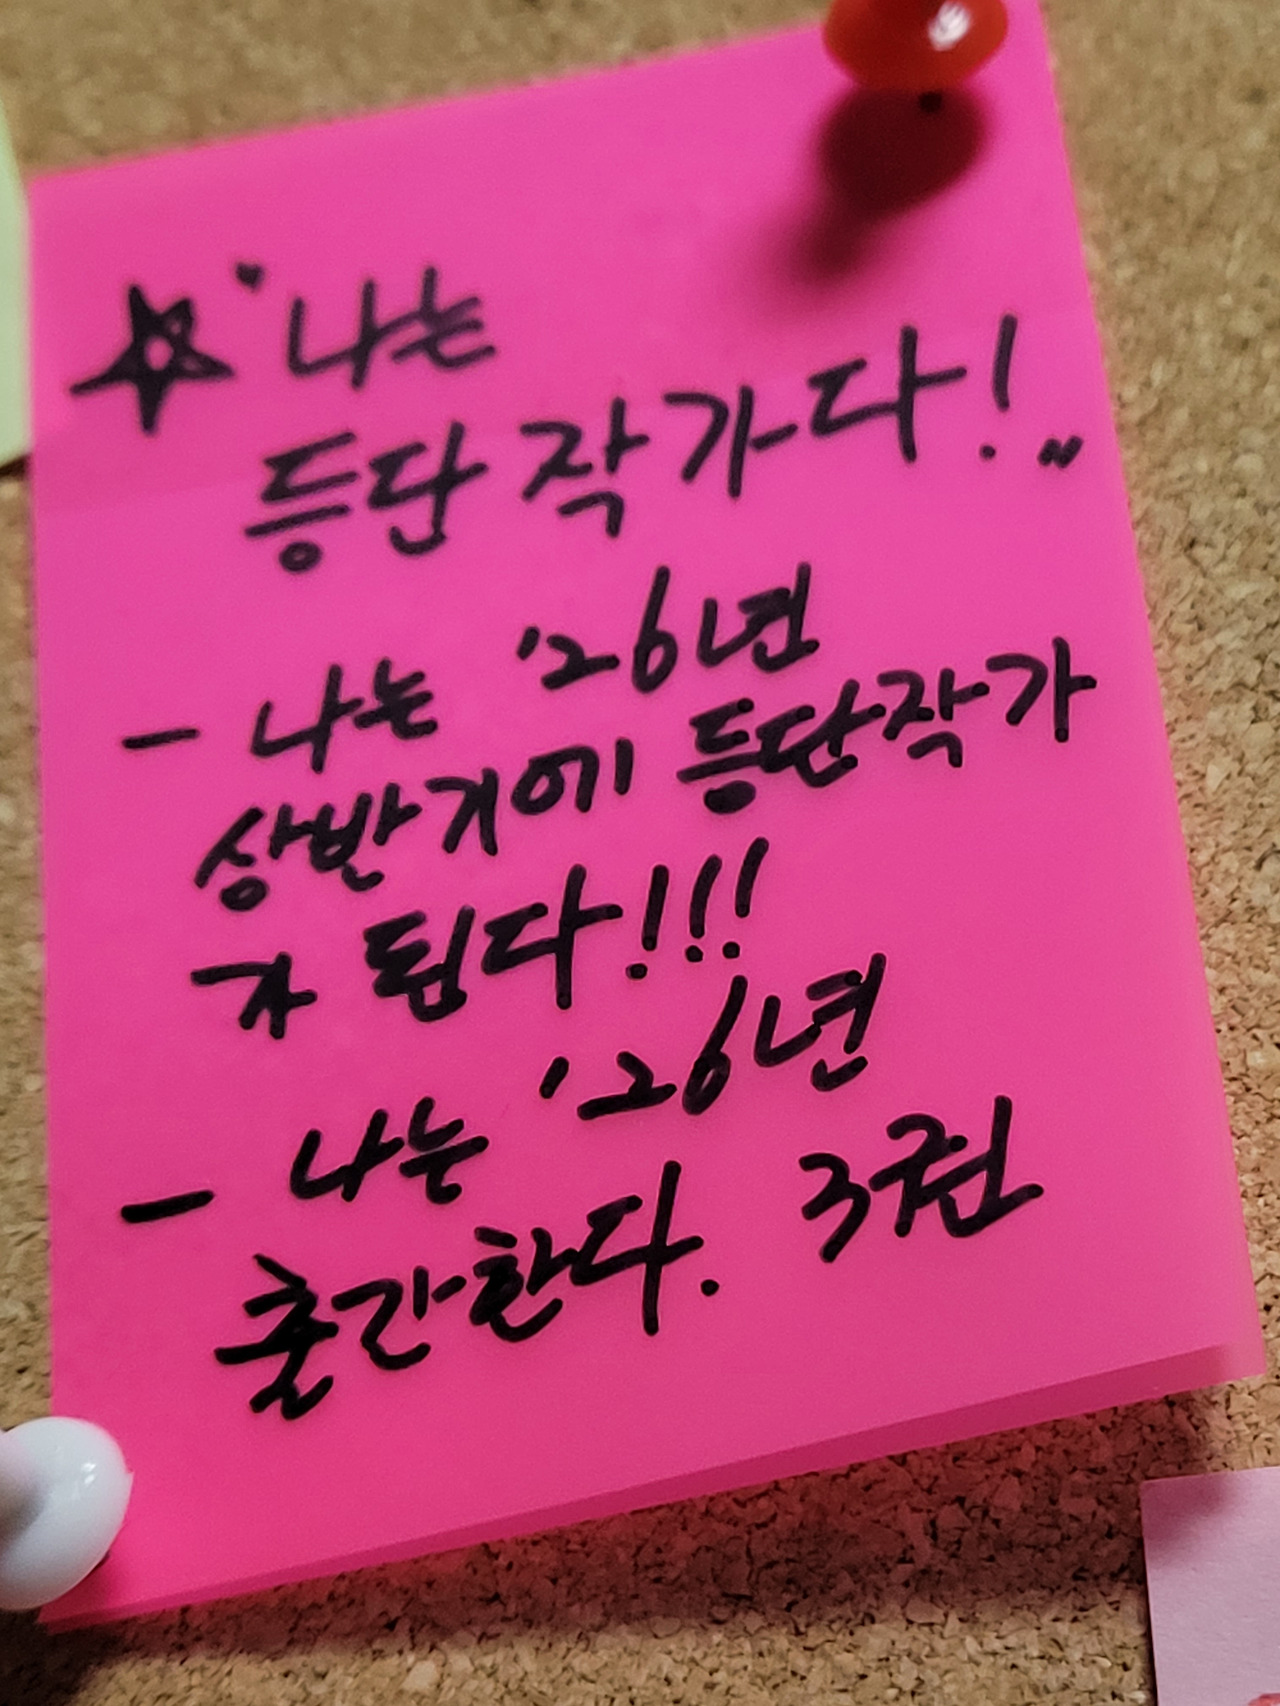 ☆ "나는
등단 작가다!"
- 나는 '26년
상반기에 등단작가
가 된다!!!
- 나는 '26년
출간한다. 3권